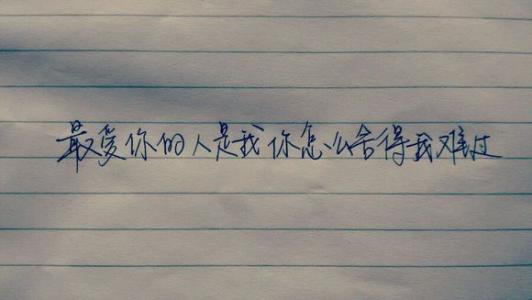 最爱你的人是我你怎么舍得我难过